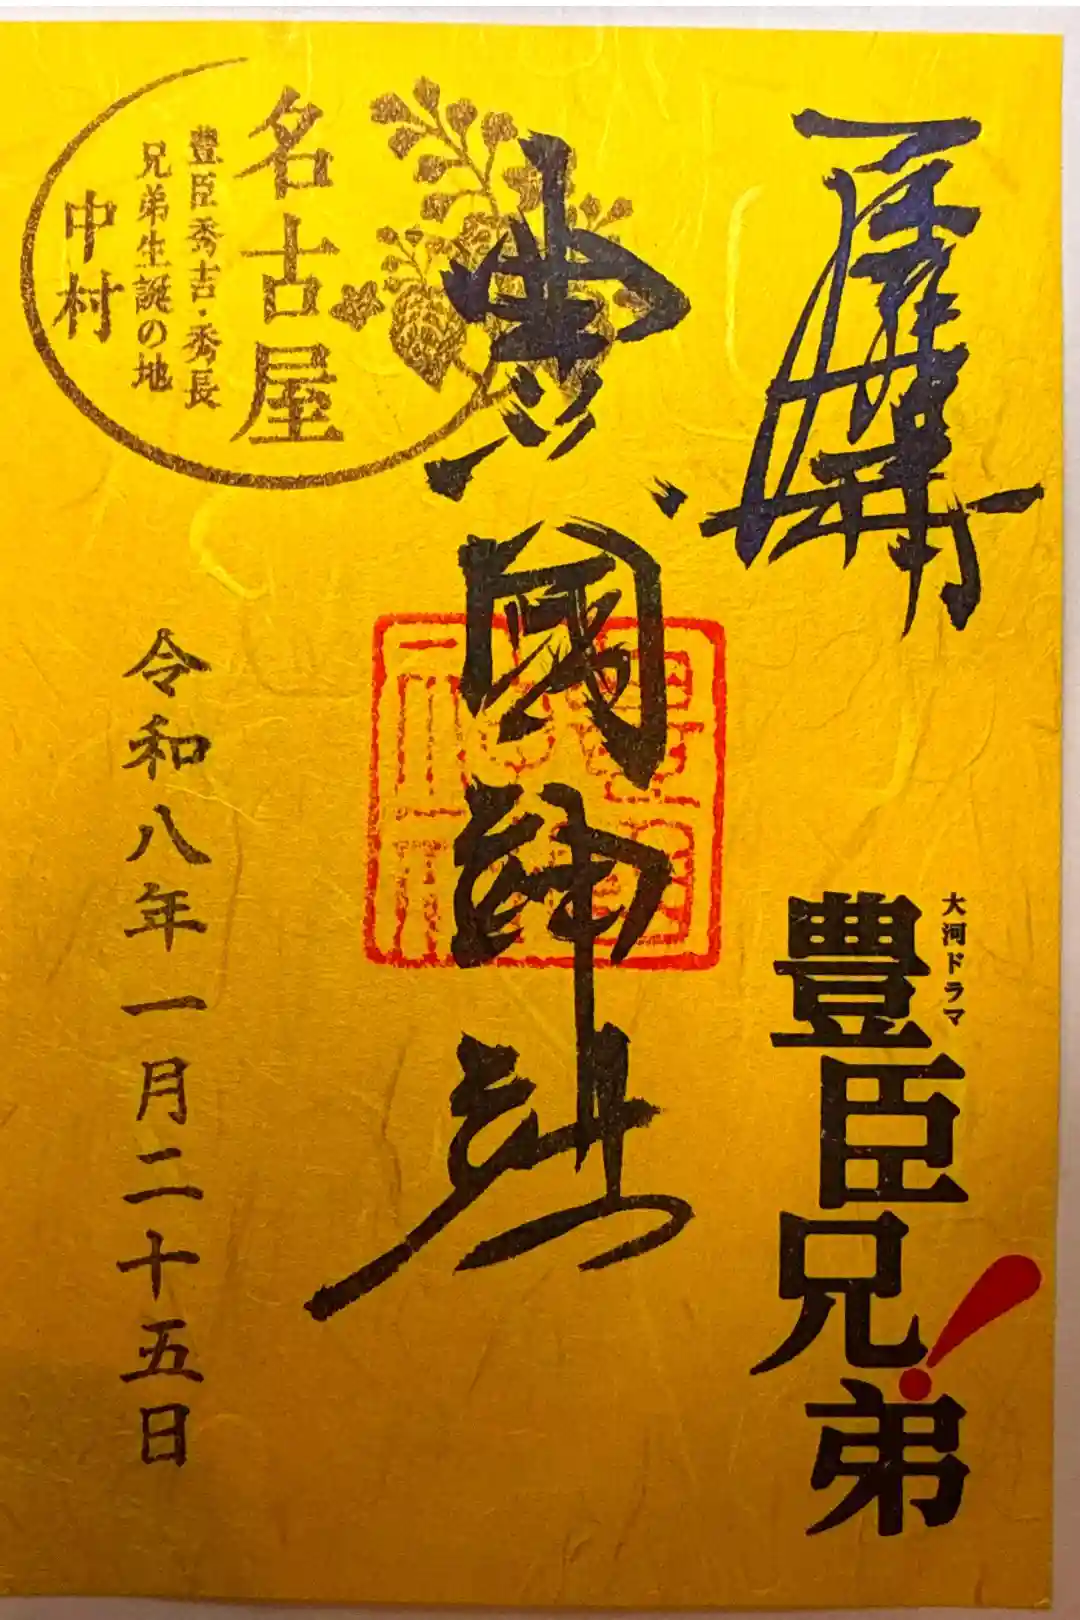 大河ドラマ
豊臣兄弟!
豊國神社
名古屋
豊臣秀吉・秀長
兄弟生誕の地
中村
令和八年一月二十五日